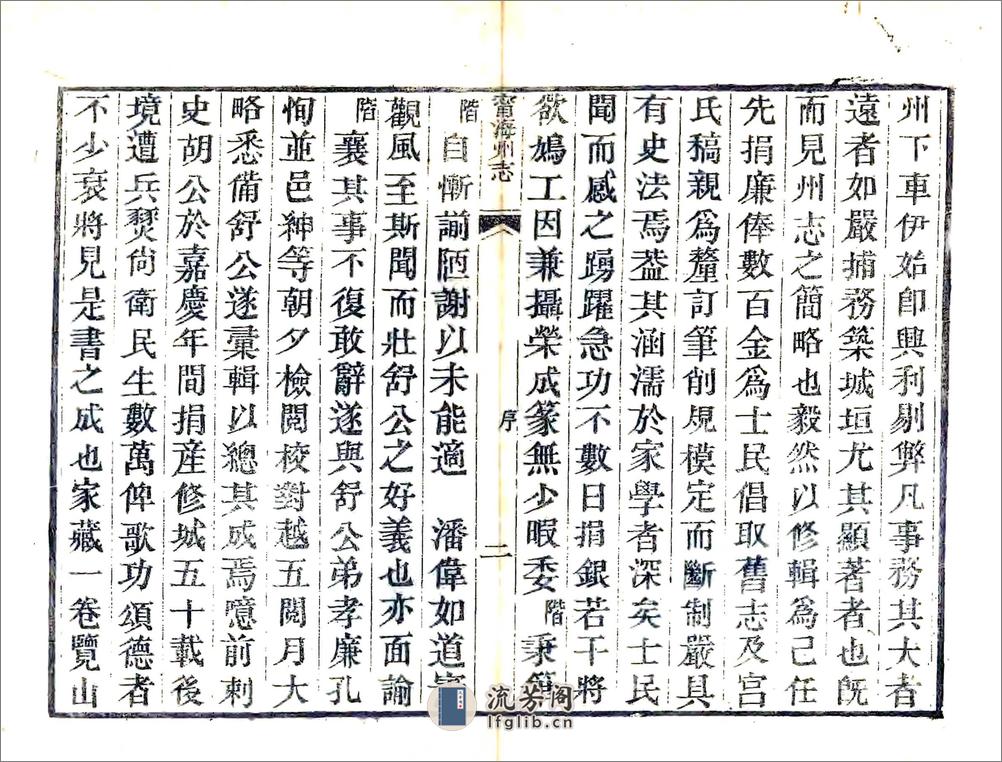 州下車伊始卽興利剔弊凡事務其大者
遠者如嚴捕務築城垣尤其顯著者也旣
而見州志之簡略也毅然以修輯爲己任
先捐廉俸數百金爲士民倡取舊志及宫
氏稿親爲釐訂筆削規模定而斷制嚴具
有史法焉葢其涵濡於家學者深矣士民
聞而感之踴躍急功不數日捐銀若干將
欲鳩工因兼攝榮成篆無少暇委階秉筆
甯海州志
序
二
階自慚謭陋謝以未能適 潘偉如道
觀風至斯聞而壯舒公之好義也亦面諭
階襄其事不復敢辭遂與舒公弟孝廉孔
恂並邑紳等朝夕檢閱校對越五閱月大
略悉備舒公遂彙輯以總其成焉噫前刺
史胡公於嘉慶年間捐産修城五十載後
境遭兵燹尙衛民生數萬俾歌功頌德者
不少衰將見是書之成也家藏一卷覽山
流芳阁
lfglib.cn